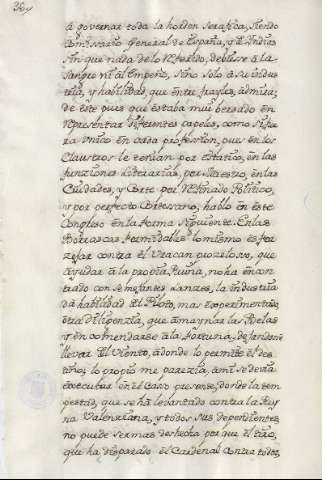 à governar toda la horden serafica, siendo
Comissario General de España, y de Indias
sin que nada de lo referido, debiese à la
sangre ni al Empeño, sino solo à su indus
tria, y habilidad, que entre frayles, admira;
de este pues que estaba mui bersado en
representar diferentes papeles, como si fue
ra unico en cada profession, pues en los
Claustros le tenian por extatico, en las
funciones literarias, por Maestro, en las
Ciudades, y Corte por refinado Politico,
y por perfecto Cortesano; hablò en este
Congreso en la forma siguiente. En las
Borrascas formidables lo mismo es for
zejar contra el Uracan proceloso, que
ayudar à la propia ruina, no ha encon
trado con semejantes lanzes, la industria
da habilidad del Piloto, mas experimentado,
otra diligenzia, que amaynar las Velas
y encomendarse à la fortuna, dejandose
llevar del Viento, adonde lo permite el des
tino; lo propio me parezia, à mi se devia
executar en el caso presente, donde la tem
pestad, que se hà levantado contra la Rey
na Valenziana, y todos sus dependientes,
no puede ser mas deshecha por que el tiro,
que ha disparado el Cardenal contra todos,